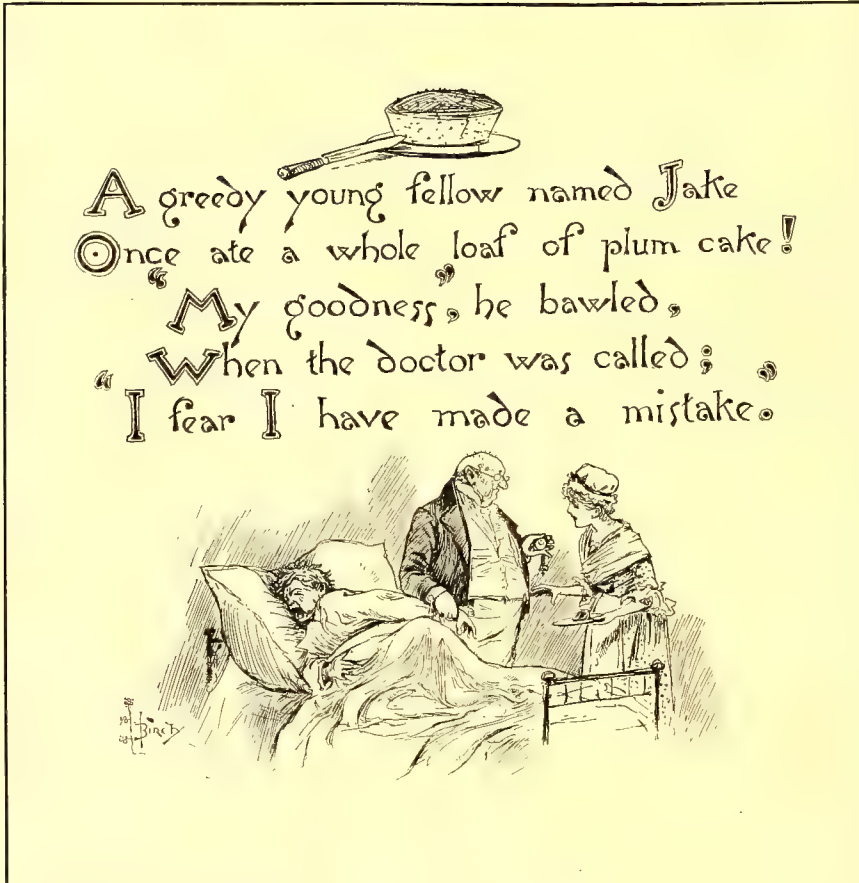 A greedy young fellow named Jake
Once ate a whole loaf of plum cake!
"My goodness", he bawled,
When the doctor was called;
"I fear I have made a mistake."
Birch